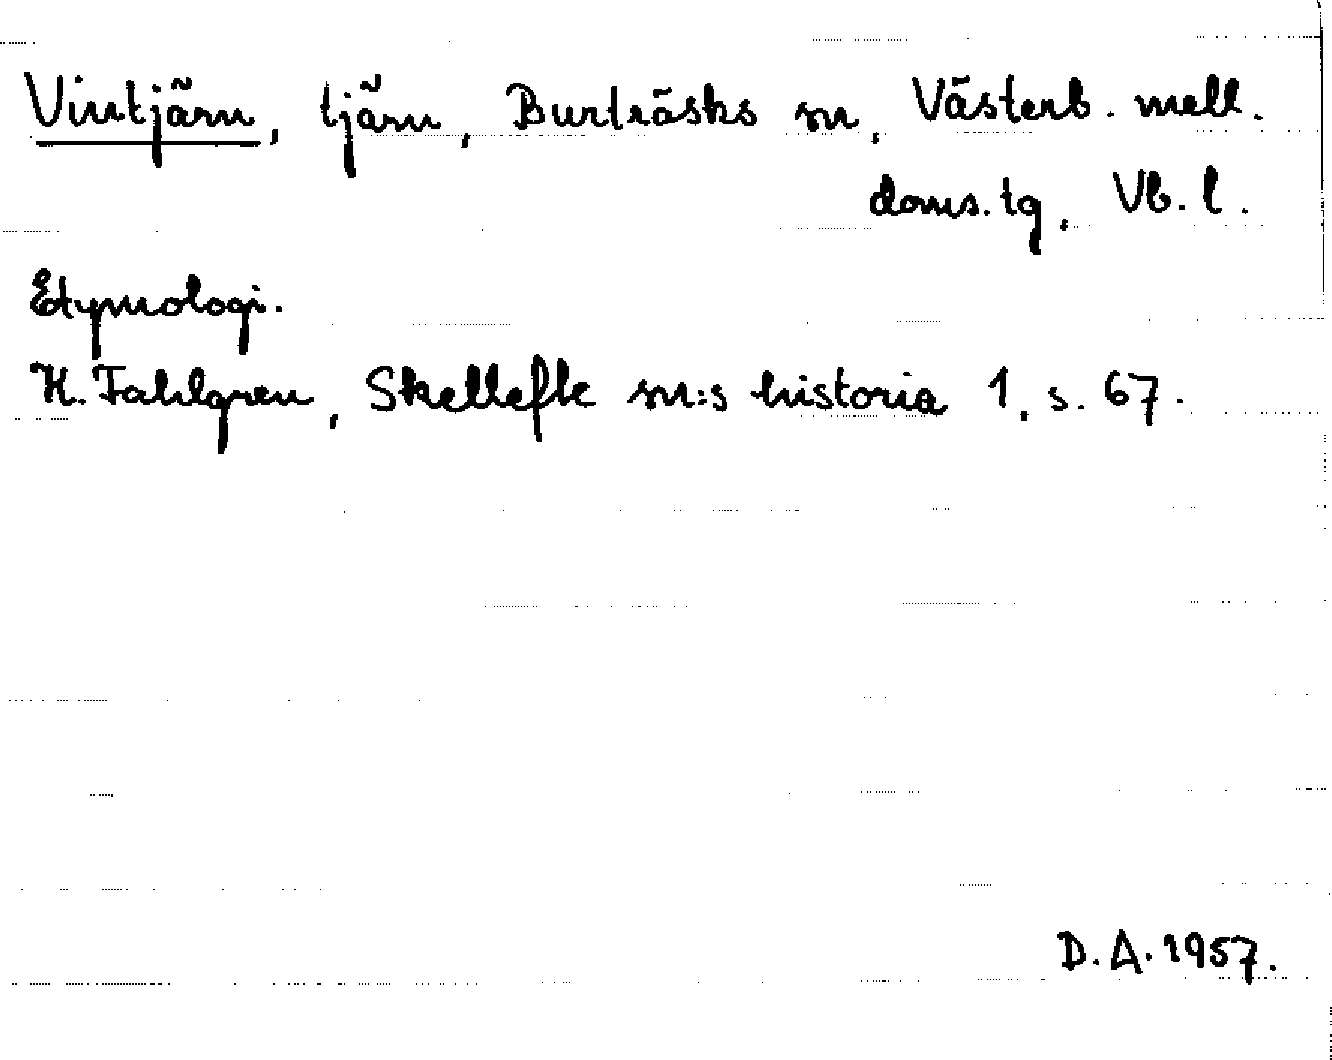 Vintjärn, tjärn, Burträsks sn, Västerb. mell.
doms.tg, Vb. l.
Etymologi.
K. Fahlgren, Skellefte sn:s historia 1, s. 67.
D.A. 1957.